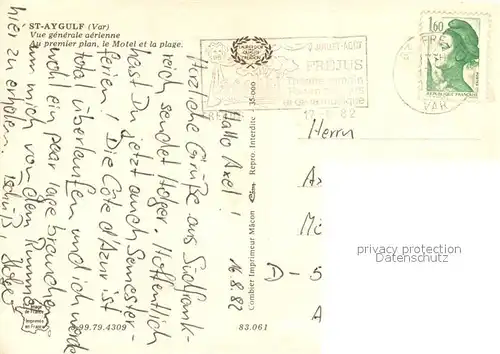 ST-AYGULF (Var)
Vue générale aérienne
Au premier plan, le Motel et la plage.
JUILLET-AOUT
FREJUS
de la musique
FREJUS
17-8 82
1,60
REPUBLIQUE FRANÇAISE
VAR
Hallo Axel!
16.8.82
Herzliche Grüße aus Südfrank-
reich sendet Holger. Hoffentlich
hast Du jetzt auch Semester-
ferien! Die Côte d'Azur ist
total überlaufen und ich werde
wohl ein paar Tage brauchen
um mich von dem Rummel
hier zu erholen. Tschüß, Holger
Combier Imprimeur Mâcon
Repro. Interdite
35.000
Herrn
A
Mü
A - 5
A
privacy protection
Datenschutz
Imprimé
en France
99.79.4309
83.061